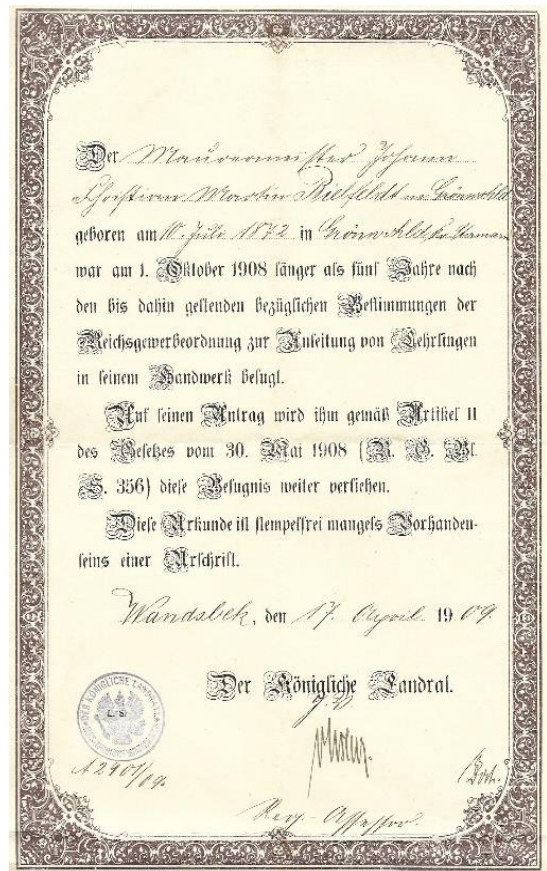 Der Maurermeister Johann
Christian Martin Bielfeldt in Grönwohld
geboren am 10. Juli 1872 in Grönwohld Kr. Stormarn
war am 1. Oktober 1908 länger als fünf Jahre nach
den bis dahin geltenden bezüglichen Bestimmungen der
Reichsgewerbeordnung zur Anleitung von Lehrlingen
in seinem Handwerk befugt.
Auf seinen Antrag wird ihm gemäß Artikel II
des Gesetzes vom 30. Mai 1908 (R. G. Bl.
S. 356) diese Befugnis weiter verliehen.
Diese Urkunde ist stempelfrei mangels Vorhanden-
seins einer Urschrift.
Wandsbek, den 17. April 1909.
Der Königliche Landrat.
DER KÖNIGLICHE LANDRAT
L.S.
A 2901/09.
Reg.-Assessor.